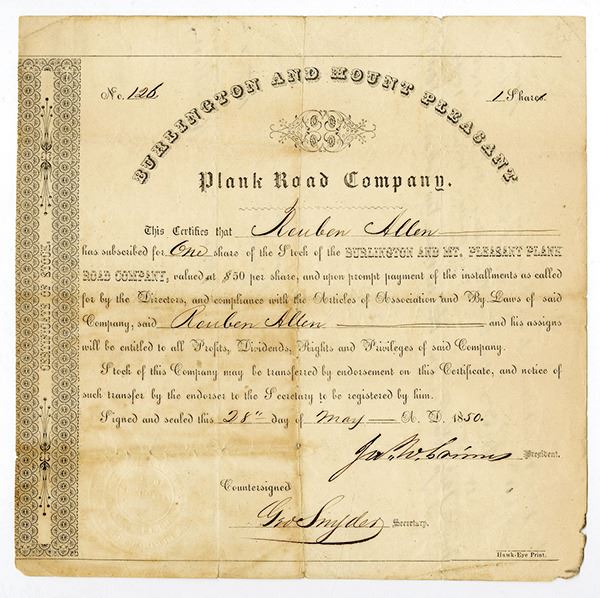 No. 126
1 Share
BURLINGTON AND MOUNT PLEASANT
Plank Road Company.
This Certifies that Reuben Allen
has subscribed for One share of the Stock of the BURLINGTON AND MT. PLEASANT PLANK
ROAD COMPANY, valued at $50 per share, and upon prompt payment of the installments as called
for by the Directors, and compliance with the Articles of Association and By-Laws of said
Company, said Reuben Allen and his assigns
will be entitled to all Profits, Dividends, Rights and Privileges of said Company.
Stock of this Company may be transferred by endorsement on this Certificate, and notice of
such transfer by the endorser to the Secretary to be registered by him.
Signed and sealed this 28" day of May A. D. 1850.
Jas. W. President.
Countersigned
Geo Snyder Secretary.
Hawk-Eye Print.
CERTIFICATE OF STOCK.